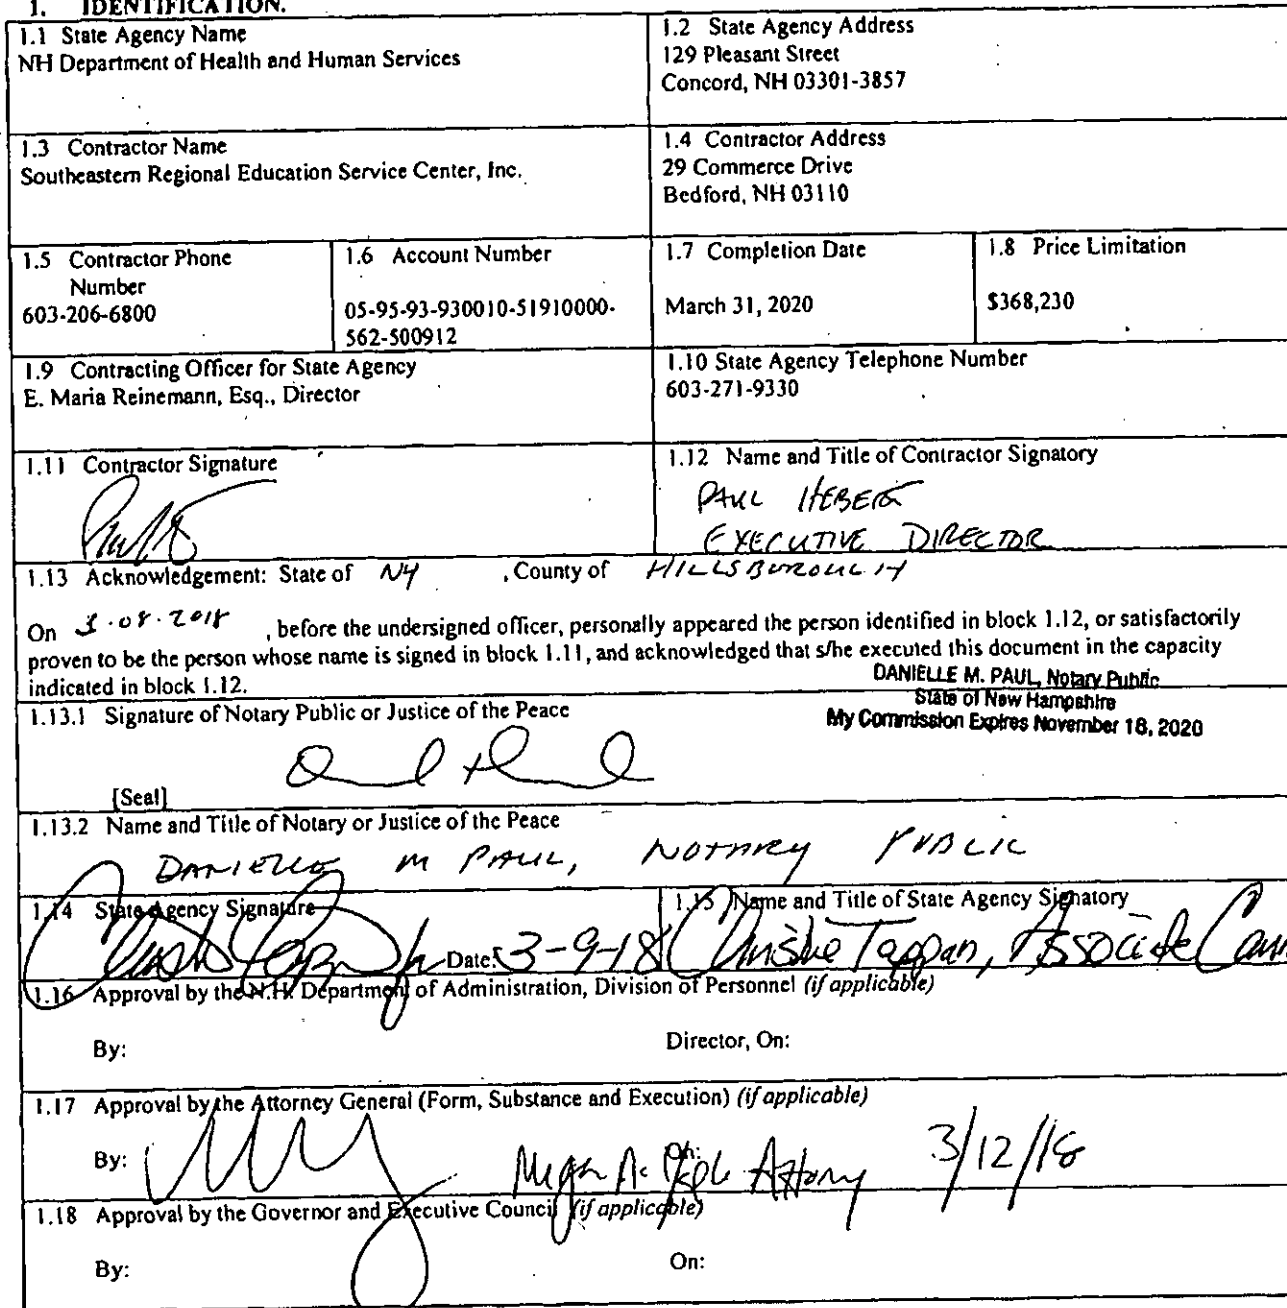 1. IDENTIFICATION.
1.1 State Agency Name
NH Department of Health and Human Services
1.2 State Agency Address
129 Pleasant Street
Concord, NH 03301-3857
1.3 Contractor Name
Southeastern Regional Education Service Center, Inc.
1.4 Contractor Address
29 Commerce Drive
Bedford, NH 03110
1.5 Contractor Phone
Number
603-206-6800
1.6 Account Number
05-95-93-930010-51910000-
562-500912
1.7 Completion Date
March 31, 2020
1.8 Price Limitation
$368,230
1.9 Contracting Officer for State Agency
E. Maria Reinemann, Esq., Director
1.10 State Agency Telephone Number
603-271-9330
1.11 Contractor Signature
1.12 Name and Title of Contractor Signatory
PAUL HEBERT
EXECUTIVE DIRECTOR
1.13 Acknowledgement: State of NH , County of HILLSBOROUGH
On 3.08.2018 , before the undersigned officer, personally appeared the person identified in block 1.12, or satisfactorily
proven to be the person whose name is signed in block 1.11, and acknowledged that s/he executed this document in the capacity
indicated in block 1.12.
DANIELLE M. PAUL, Notary Public
State of New Hampshire
My Commission Expires November 18, 2020
1.13.1 Signature of Notary Public or Justice of the Peace
[Seal]
1.13.2 Name and Title of Notary or Justice of the Peace
DANIELLE M PAUL, NOTARY PUBLIC
1.14 State Agency Signature
Date: 3-9-18
1.15 Name and Title of State Agency Signatory
Christine Tappan, Associate Com
1.16 Approval by the N.H. Department of Administration, Division of Personnel (if applicable)
By:
Director, On:
1.17 Approval by the Attorney General (Form, Substance and Execution) (if applicable)
By:
On:
Attorney 3/12/18
1.18 Approval by the Governor and Executive Council (if applicable)
By:
On: